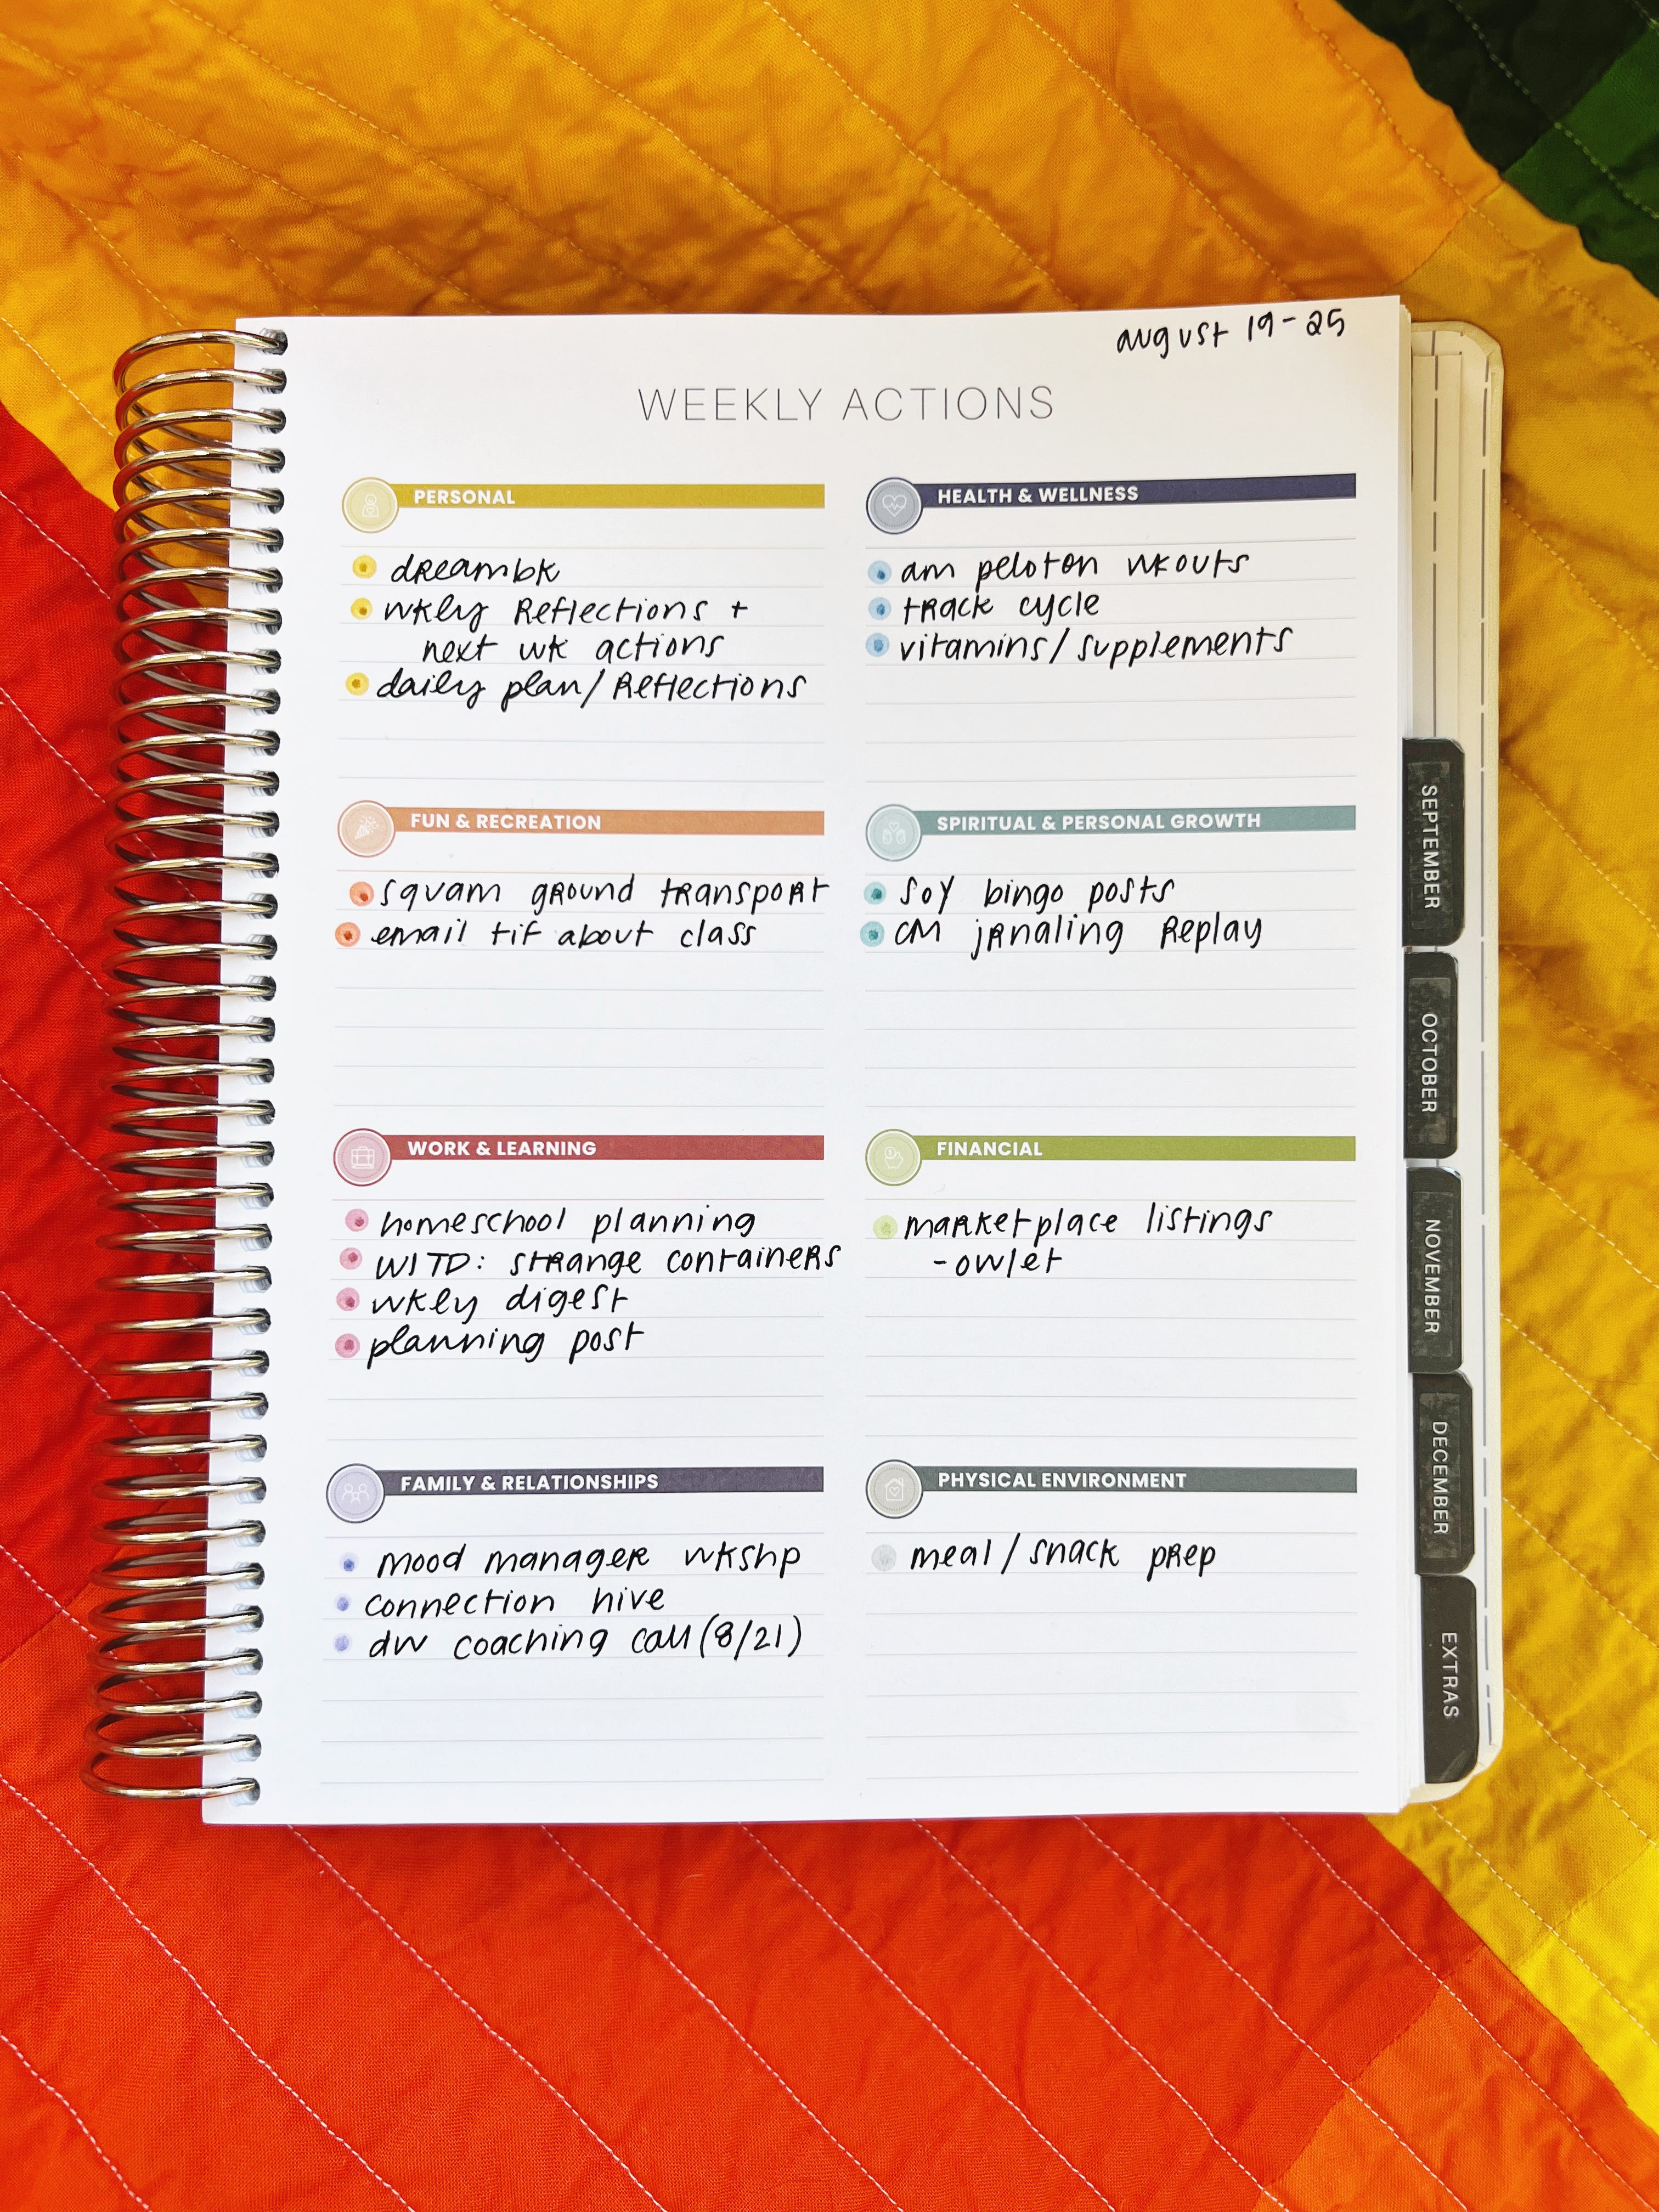 august 19-25
WEEKLY ACTIONS
PERSONAL
dreambk
wkly Reflections +
next wk actions
daily plan/Reflections
HEALTH & WELLNESS
am peloton wkouts
track cycle
vitamins/supplements
FUN & RECREATION
squam ground transport
email tif about class
SPIRITUAL & PERSONAL GROWTH
SOY bingo posts
CM jrnaling Replay
WORK & LEARNING
homeschool planning
WITD: strange containers
wkly digest
planning post
FINANCIAL
marketplace listings
-owlet
FAMILY & RELATIONSHIPS
mood manager wkshp
connection hive
dw coaching call (8/21)
PHYSICAL ENVIRONMENT
meal/snack prep
SEPTEMBER
OCTOBER
NOVEMBER
DECEMBER
EXTRAS